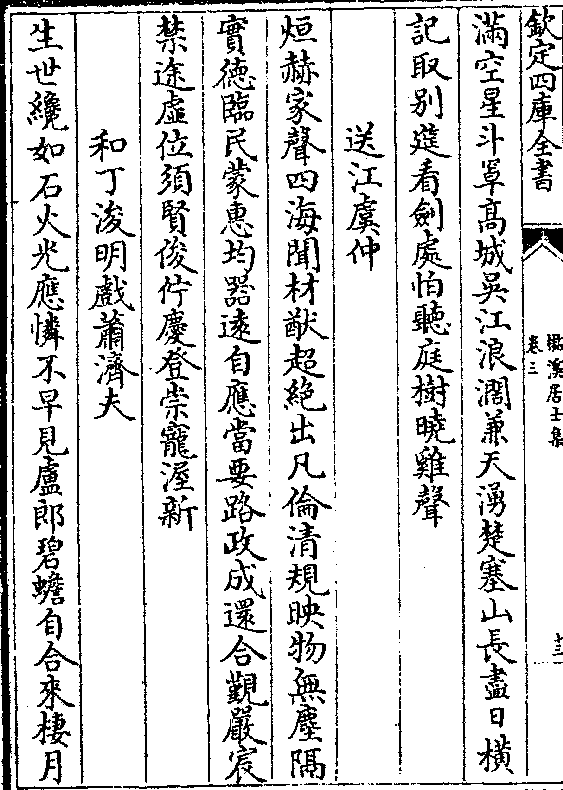 欽定四庫全書
檆溪居士集
卷三
十三
滿空星斗罩高城吳江浪濶兼天湧楚塞山長盡日橫
記取别筵看劍處怕聽庭樹曉雞聲
送江虞仲
烜赫家聲四海聞材猷超絶出凡倫清規映物無塵隔
實德臨民蒙惠均器逺自應當要路政成還合覲嚴宸
禁途虛位須賢俊佇慶登崇寵渥新
和丁浚明戲蕭濟夫
生世纔如石火光應憐不早見盧郎碧蟾自合來棲月